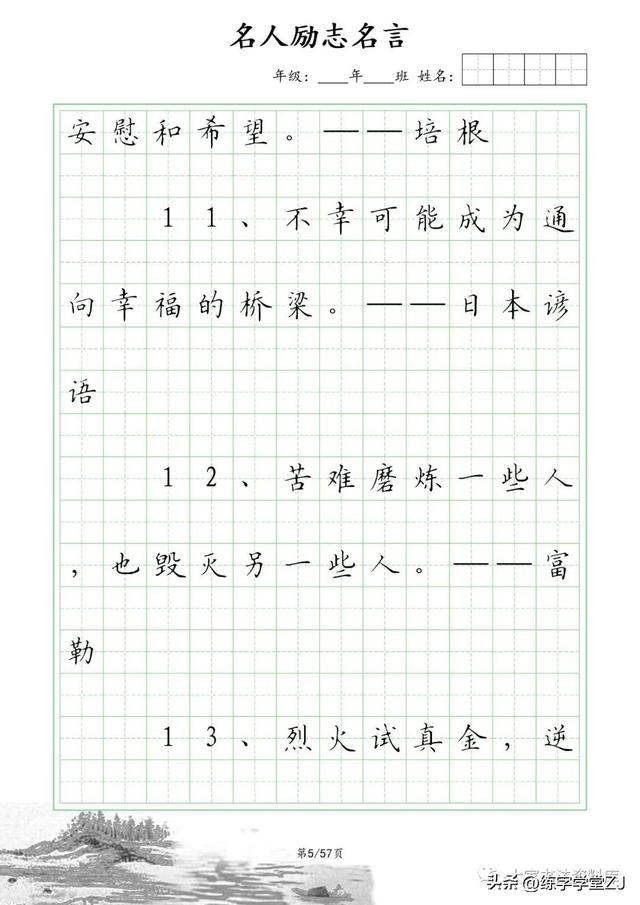 名人励志名言
年级：____年____班 姓名：
安慰和希望。——培根
11、不幸可能成为通
向幸福的桥梁。——日本谚
语
12、苦难磨炼一些人
，也毁灭另一些人。——富
勒
13、烈火试真金，逆
第5/57页
头条@练字学堂ZJ